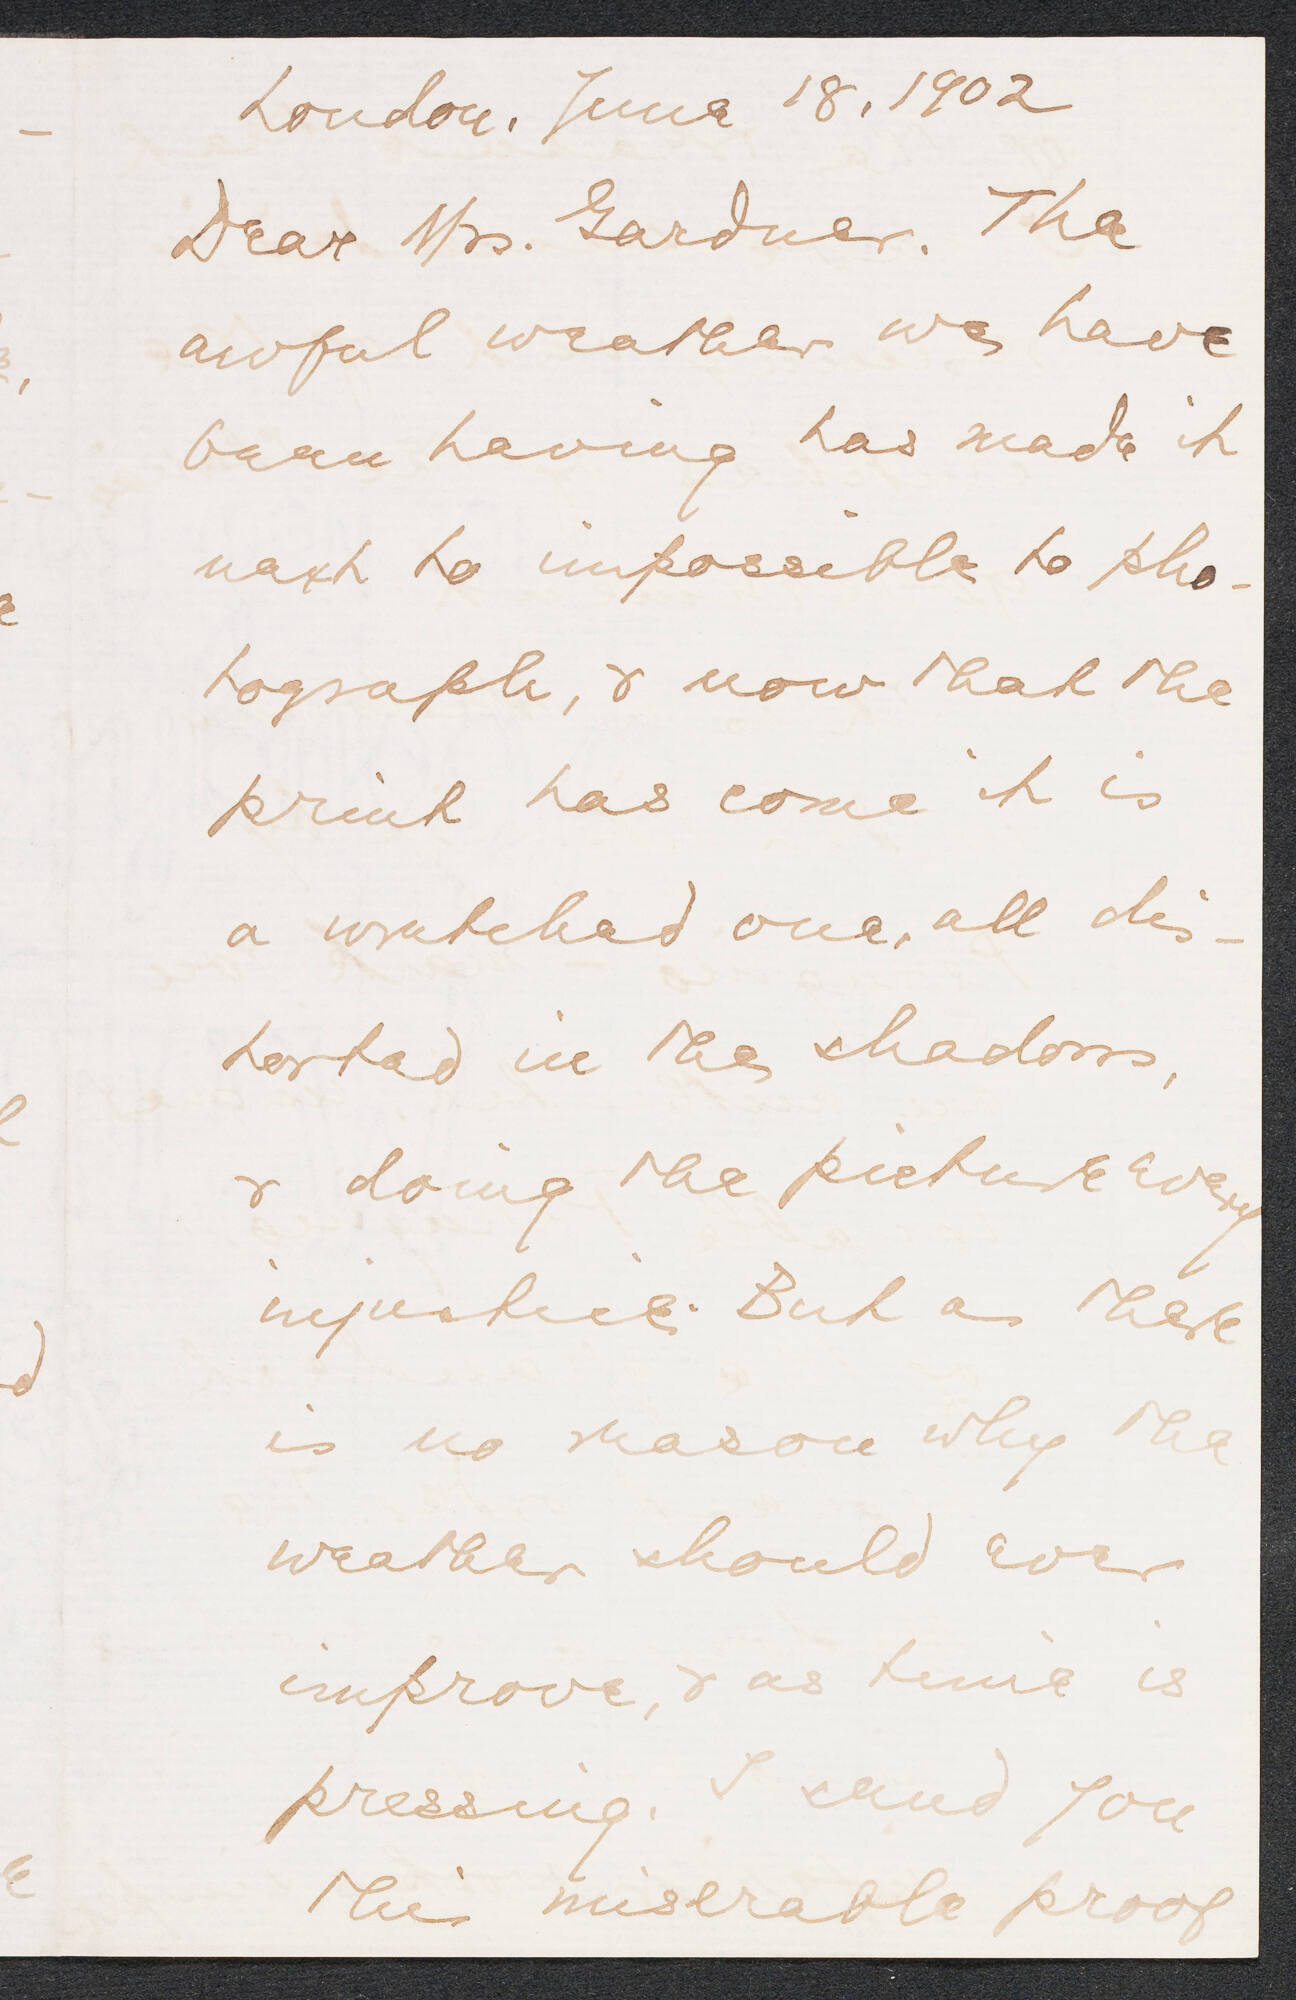 London. June 18, 1902
Dear Mrs. Gardner. The
awful weather we have
been having has made it
next to impossible to pho-
tograph, & now that the
print has come it is
a wretched one, all dis-
torted in the shadows,
& doing the picture every
injustice. But as there
is no reason why the
weather should ever
improve, & as time is
pressing. I send you
this miserable proof